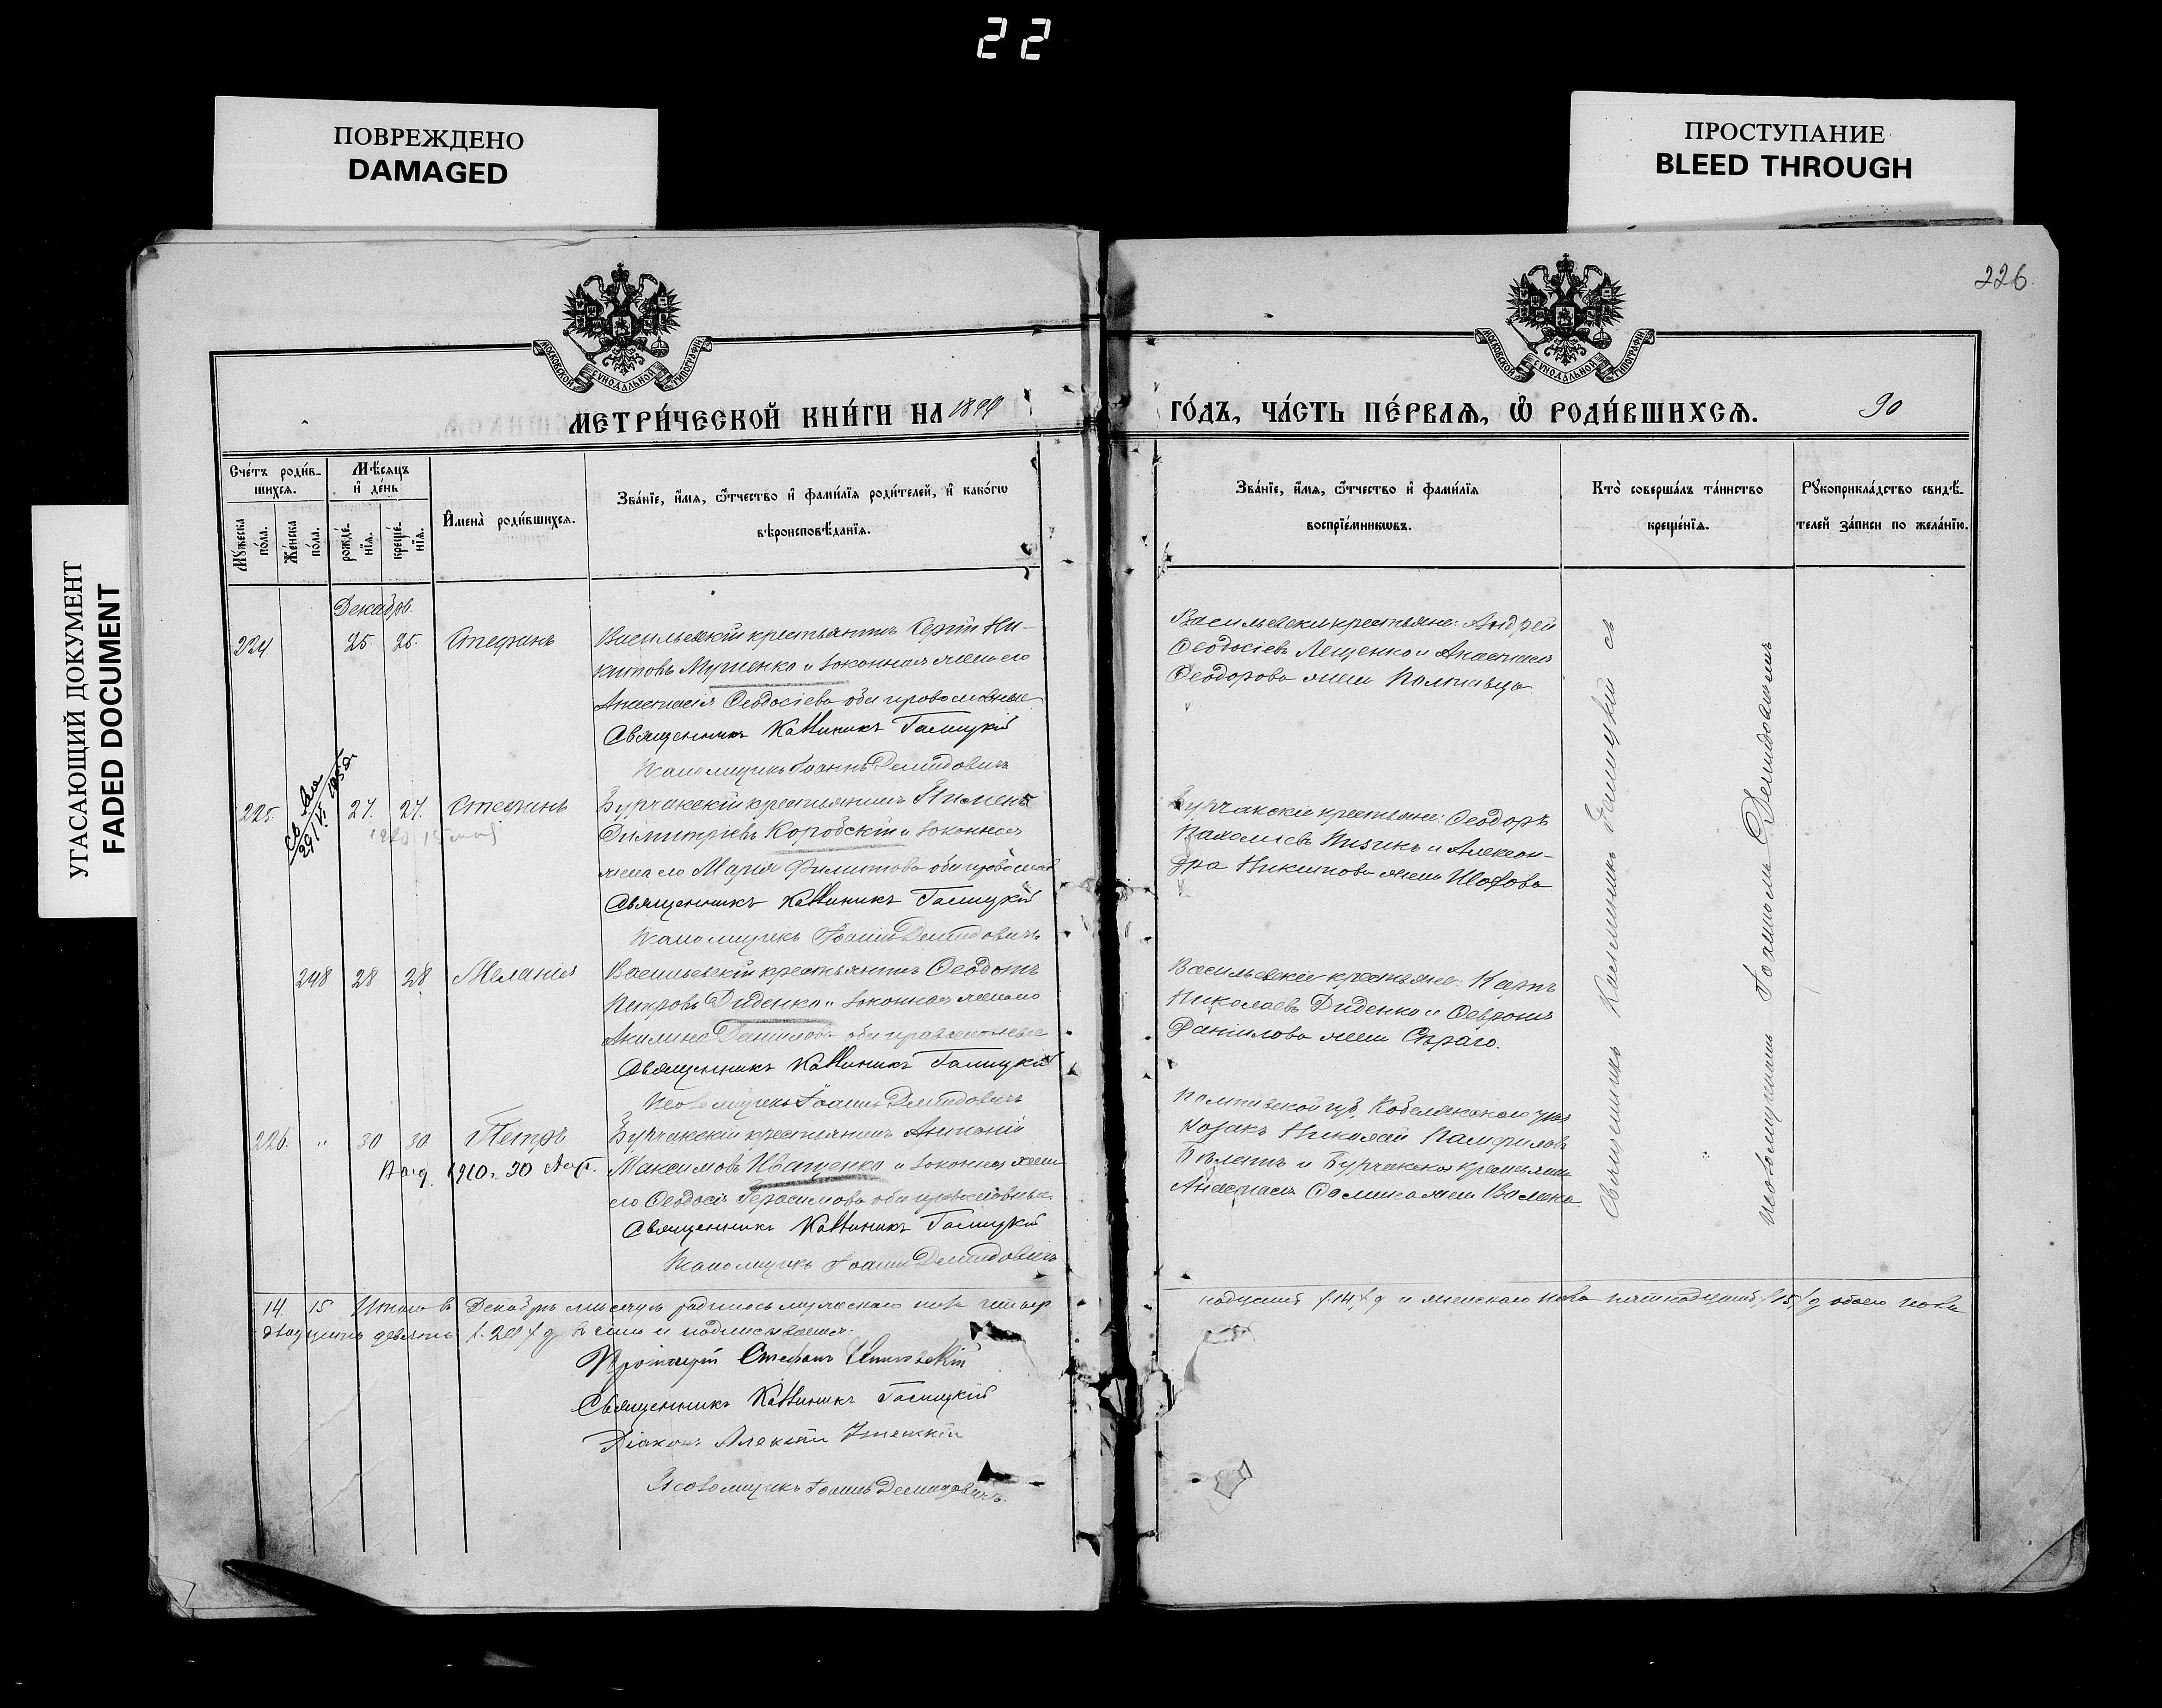 22
ПОВРЕЖДЕНО
DAMAGED
ПРОСТУПАНИЕ
BLEED THROUGH
УГАСАЮЩИЙ ДОКУМЕНТ
FADED DOCUMENT
226.
МОСКОВСКОЙ СѴНОДАЛЬНОЙ ТИПОГРАФІИ
МОСКОВСКОЙ СѴНОДАЛЬНОЙ ТИПОГРАФІИ
МЕТРИ́ЧЕСКОЙ КНИ́ГИ НА 1899
ГО́ДЪ, ЧА́СТЬ ПЕ́РВАѦ, Ѽ РОДИ́ВШИХСѦ. 90
Сче́тъ роди́в-
шихсѧ.
Мꙋ́жеска по́ла.
Же́нска по́ла.
Мѣ́сѧцъ
и҆ де́нь
рожде́-
нїѧ.
креще́-
нїѧ.
И҆мена̀ роди́вшихсѧ.
Зва́нїе, и҆́мѧ, ѻ҆́тчество и҆ фами́лїѧ роди́телей, и҆ како́гѡ
вѣроисповѣ́данїѧ.
Зва́нїе, и҆́мѧ, ѻ҆́тчество и҆ фами́лїѧ
воспрїе́мникѡвъ.
Кто̀ соверша́лъ та́инство
креще́нїѧ.
Рꙋкоприкла́дство свидѣ́-
телей за́писи по жела́нїю.
Декабрь.
224 25. 25. Стефанъ
Васильевскій крестьянинъ Сергій Ни-
китовъ и законная жена его
Анастасія Ѳеодосіева оба православные
Священникъ Каллиникъ Галицкій
Псаломщикъ Іоаннъ Демидовичъ
Васильевскіе крестьяне: Андрей
Ѳеодосіевъ Лещенко и Анастасія
Ѳеодорова жена Полтавца
225. 27. 27. Стефанъ
Бурчакскій крестьянинъ Пименъ
Димитріевъ Коробскій и законная
жена его Марія Филиппова оба православ
Священникъ Каллиникъ Галицкій
Псаломщикъ Іоаннъ Демидовичъ
Бурчакскіе крестьяне: Ѳеодоръ
и Алексан-
дра Никитова жена
248 28 28 Меланія
Васильевскій крестьянинъ Ѳеодотъ
Петровъ Диденко и законная жена его
Акилина Данилова оба православные
Священникъ Каллиникъ Галицкій
Псаломщикъ Іоаннъ Демидовичъ
Васильевскіе крестьяне: Карпъ
Николаевъ Диденко и Ѳевронія
Даніилова жена Сѣраго.
226. " 30 30 Петръ
1910 г. 30
Бурчакскій крестьянинъ Антоній
Максимовъ Иващенко и законная жена
его Ѳеодосія Герасимова оба православные
Священникъ Каллиникъ Галицкій
Псаломщикъ Іоаннъ Демидовичъ
Полтавской губ. Кобелякскаго уѣз
Козакъ Николай Памфиловъ
и Бурчакская крестьянка
Анастасія жена
Священникъ Каллиникъ Галицкій съ
псаломщикомъ Іоанномъ Демидовичемъ
14. 15 Итого въ Декабрѣ мѣсяцѣ родилось мужескаго пола четыр
надцать /14/ д и женскаго пола пятнадцать /15/ д обоего пола
двадцать девять /29/ д въ чемъ и подписываемся.
Протоіерей Стефанъ
Священникъ Каллиникъ Галицкій
Діаконъ Алексій
Псаломщикъ Іоаннъ Демидовичъ.